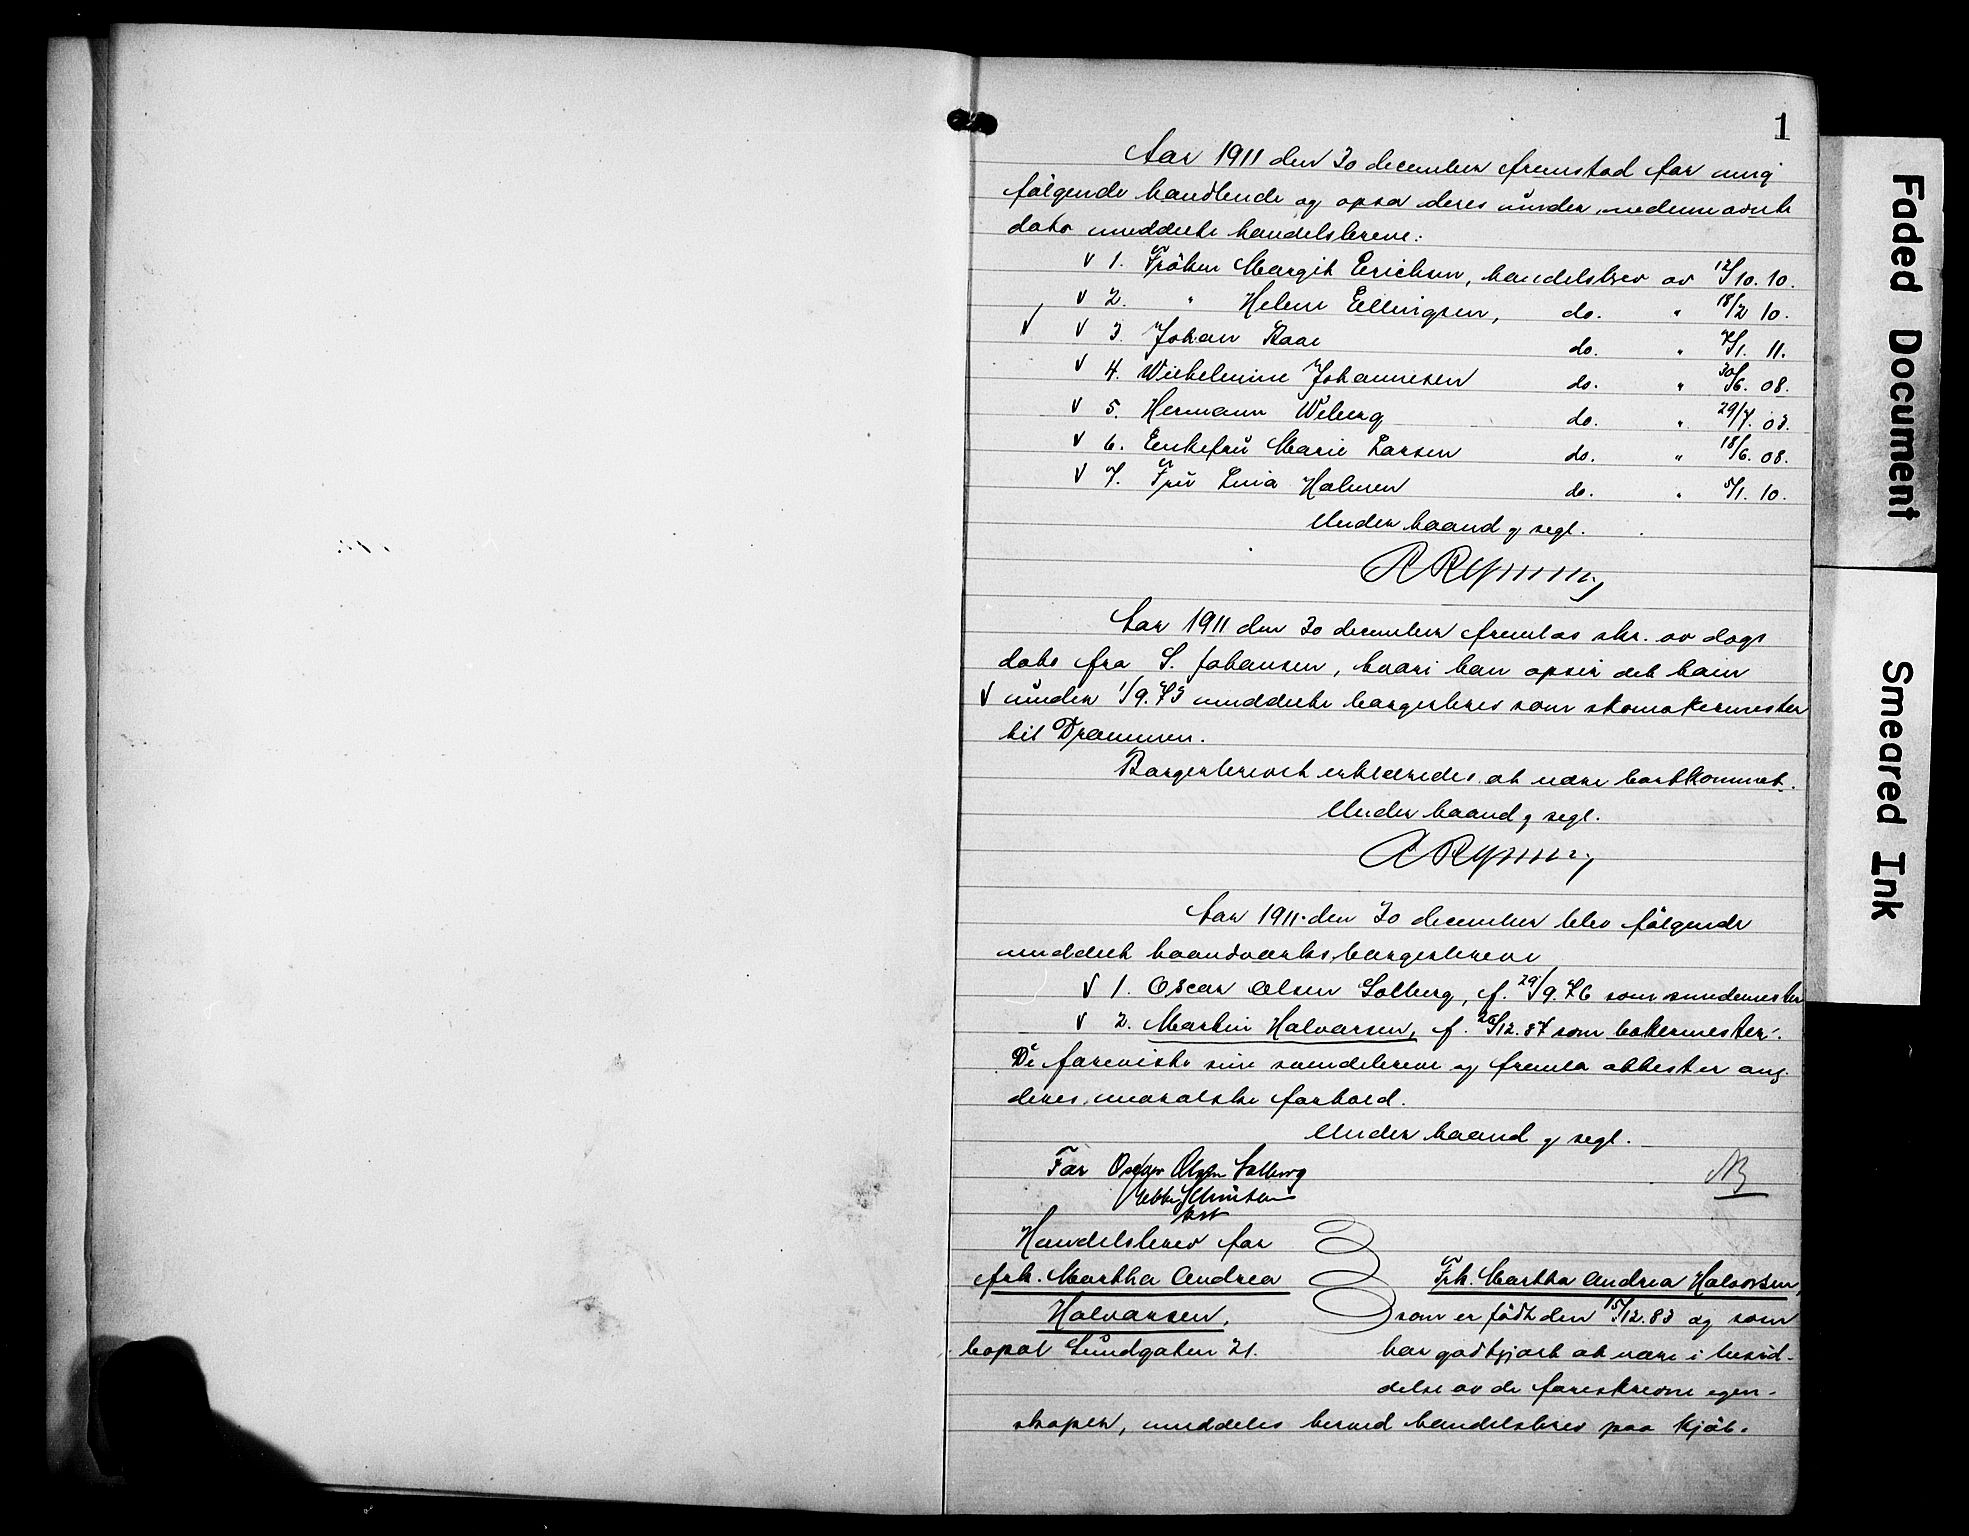 1
Aar 1911 den 30 december fremstod for mig
følgende handlende og opsa deres under nedennævnte
dato meddelte handelsbreve:
√ 1. Frøken Margit Erichsen, handelsbrev av 12/10. 10.
√ 2. " Helene Ellingsen, do. " 18/2 10.
√ √ 3. Johan Raae do. " 7/1. 11.
√ 4. Wilhelmine Johannesen do. " 30/6. 08.
√ 5. Hermann Wiberg do. " 29/7. 03.
√ 6. Enkefru Marie Larsen do. " 18/6. 08.
√ 7. Fru Lina Halmsen do. " 5/1. 10.
Under haand og segl.
Aar 1911 den 30 december fremlas skr. av dags
dato fra S. Johansen, hvori han opsir det ham
√ under 1/9. 73 meddelte borgerbrev som skomakermester
til Drammen.
Borgerbrevet erklæredes at være bortkommet.
Under haand og segl.
Aar 1911 den 30 december blev følgende
meddelt haandverksborgerbreve
√ 1. Oscar Olsen Solberg, f. 29/9. 76 som smedemester
√ 2. Martin Halvorsen, f. 26/12. 87 som bakermester.
De foreviste sine svendebreve og fremla attester ang.
deres moralske forhold.
Under haand og segl.
For Oscar Olsen Solberg
NB
Handelsbrev for
frk. Martha Andrea
Halvorsen,
bopæl Sundgaten 21.
Frk. Martha Andrea Halvorsen,
som er født den 15/12. 83 og som
har godtgjort at være i besid-
delse av de foreskrevne egen-
skaper, meddeles herved handelsbrev paa kjøb-
Faded Document
Smeared Ink